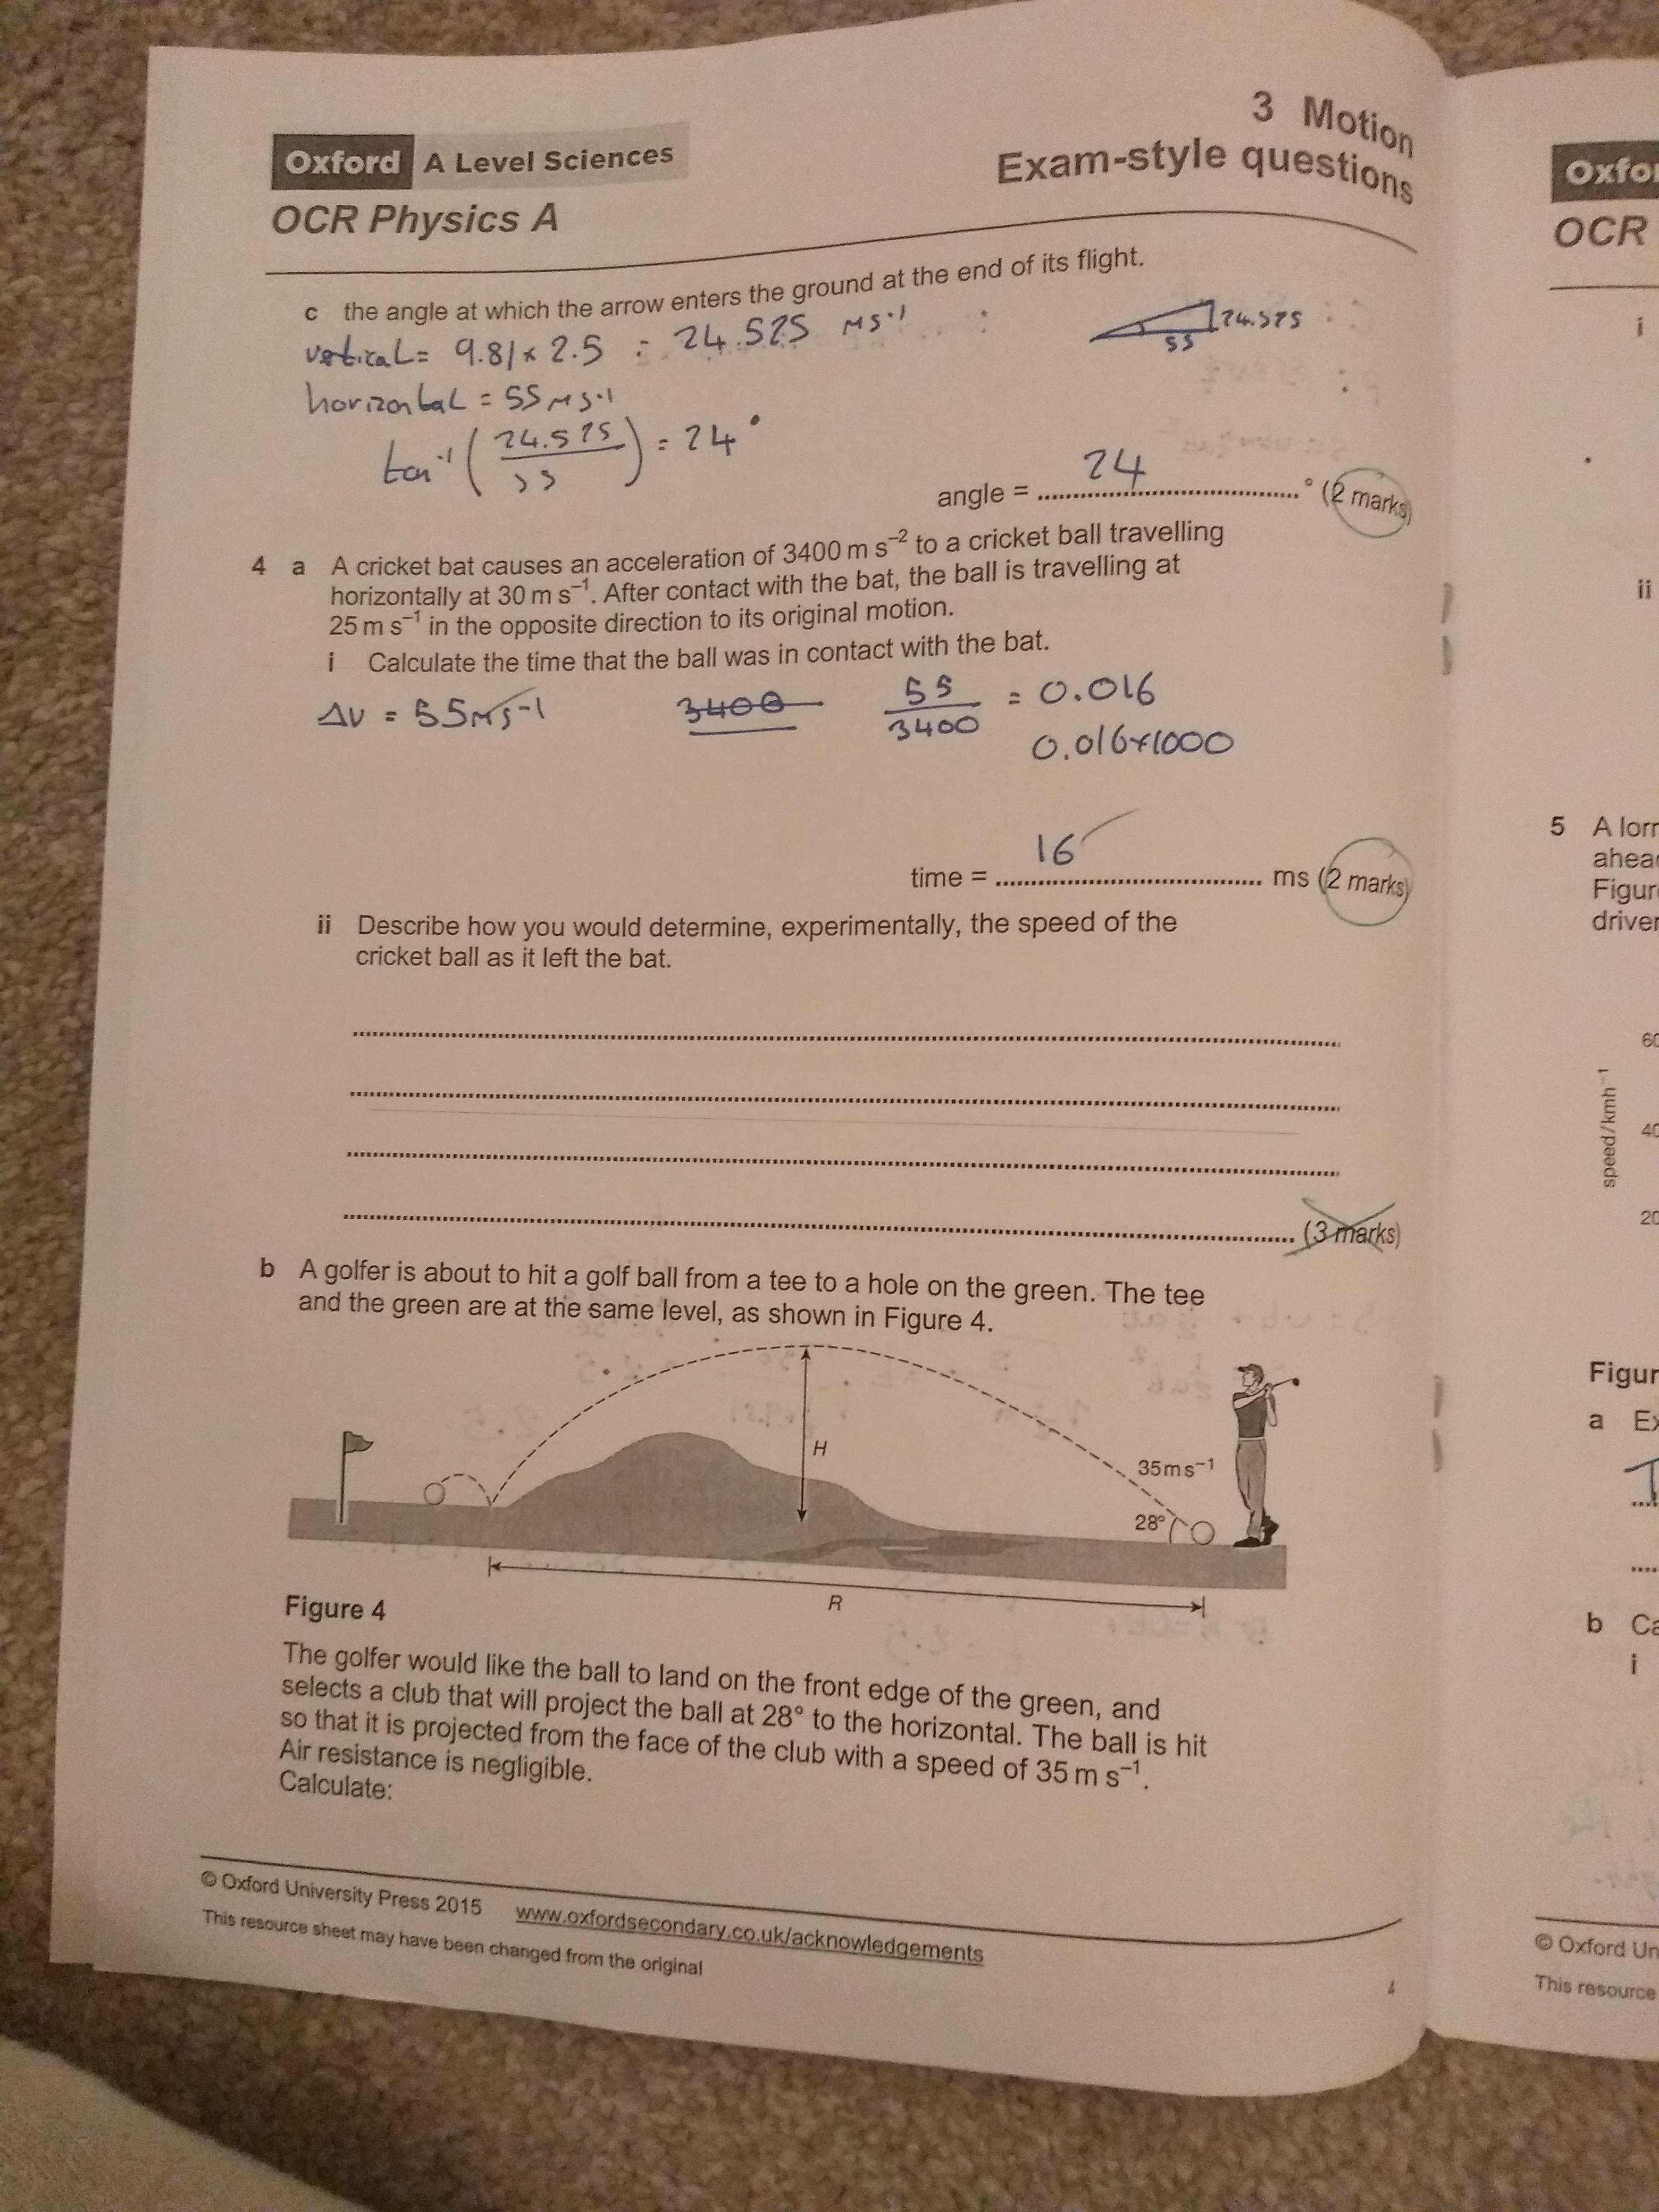 3 Motion
Exam-style questions
Oxford A Level Sciences
OCR Physics A
c the angle at which the arrow enters the ground at the end of its flight.
vertical = 9.81 × 2.5 = 24.525 ms-1
24.525
55
horizontal = 55ms-1
tan-1 ( 24.525 / 55 ) = 24°
angle = 24 ° (2 marks)
4 a A cricket bat causes an acceleration of 3400 m s−2 to a cricket ball travelling
horizontally at 30 m s−1. After contact with the bat, the ball is travelling at
25 m s−1 in the opposite direction to its original motion.
i Calculate the time that the ball was in contact with the bat.
Δv = 55ms-1 3400 55/3400 = 0.016
0.016×1000
time = 16 ms (2 marks)
ii Describe how you would determine, experimentally, the speed of the
cricket ball as it left the bat.
(3 marks)
b A golfer is about to hit a golf ball from a tee to a hole on the green. The tee
and the green are at the same level, as shown in Figure 4.
H
35 m s−1
28°
R
Figure 4
The golfer would like the ball to land on the front edge of the green, and
selects a club that will project the ball at 28° to the horizontal. The ball is hit
so that it is projected from the face of the club with a speed of 35 m s−1.
Air resistance is negligible.
Calculate:
© Oxford University Press 2015 www.oxfordsecondary.co.uk/acknowledgements
This resource sheet may have been changed from the original
4
OCR
i
ii
5 A
ahea
Figur
driver
60
speed/kmh−1
40
20
Figur
a
b
i
© Oxford Un
This resource